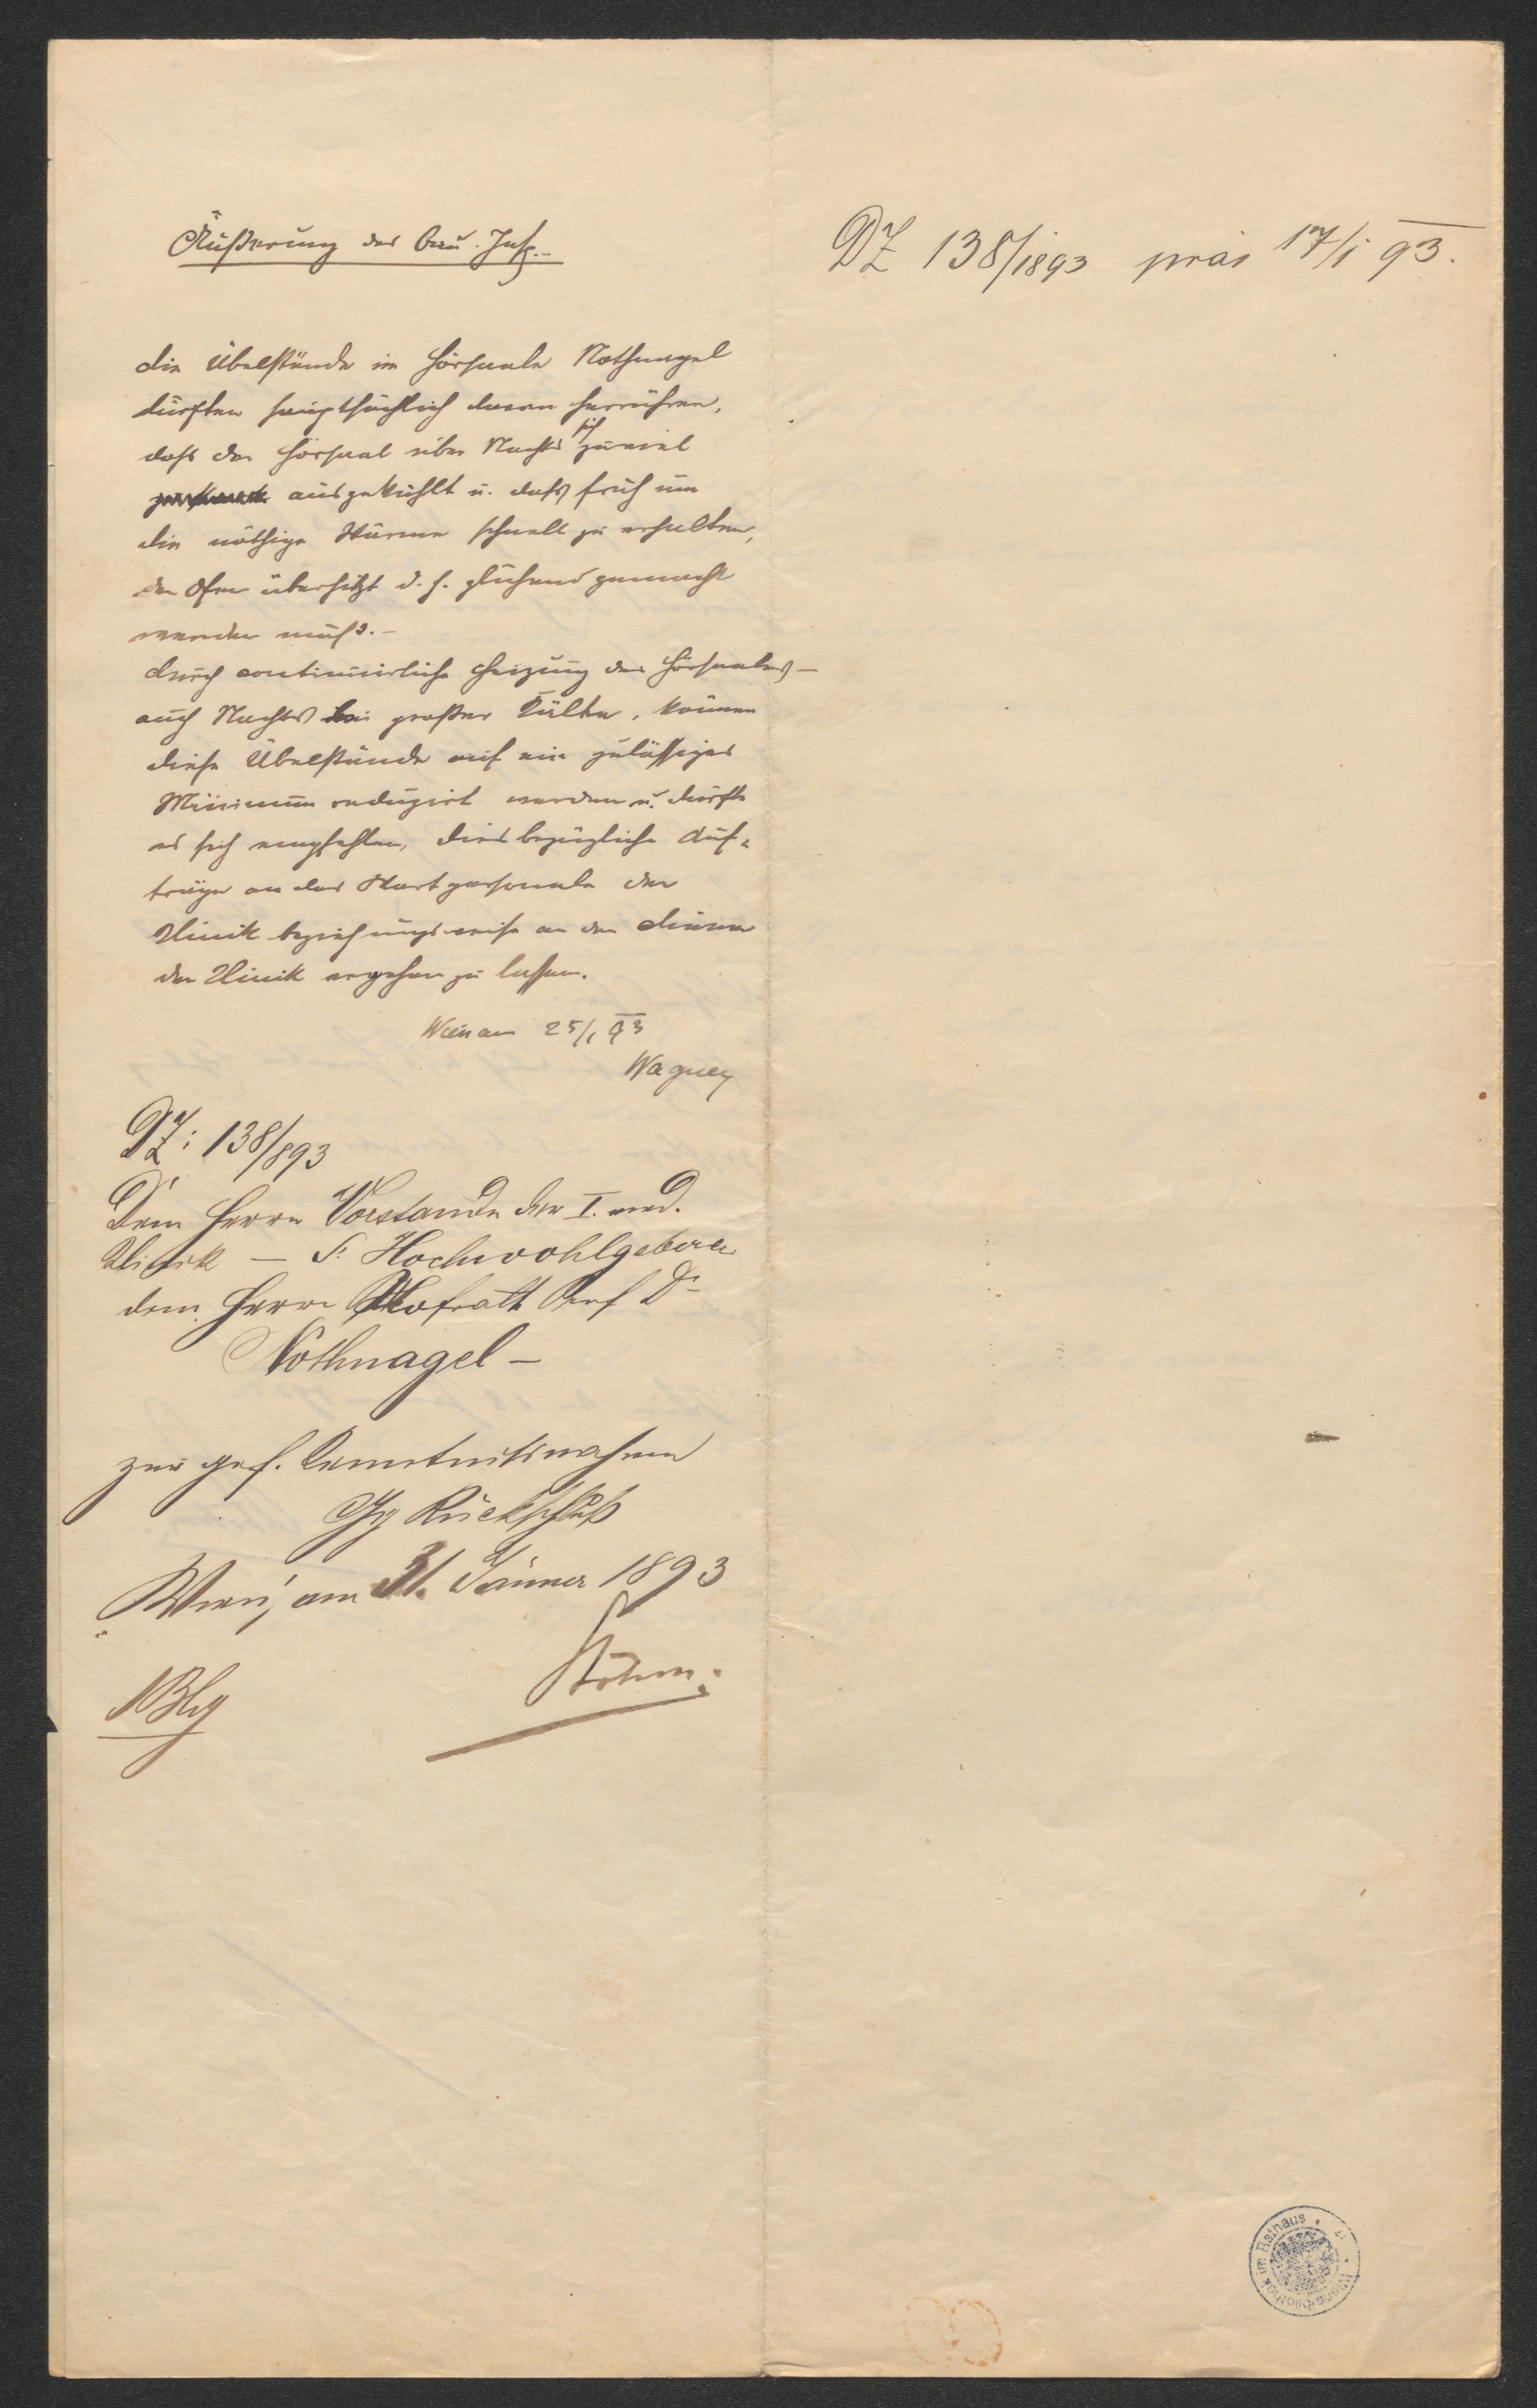 Äußerung des Bau. Insp.-
DZ 138/1893 präs 17/I 93.
die Übelstände im Hörsaale Nothnagel
dürften hauptsächlich davon herrühren,
daſs der Hörsaal über Nachts sich zuviel
ausgekühlt u. daſs früh um
die nöthige Wärme schnell zu erhalten,
der Ofen überhitzt d. h. glühend gemacht
werden muſs.-
durch continuirliche Heizung des Hörsaales -
auch Nachts bei großer Kälte, können
diese Übelstände auf ein zulässiges
Minimum reduzirt werden u. dürfte
es sich empfehlen, diesbezügliche Auf-
träge an das Wartpersonale der
Klinik beziehungsweise an den Diener
der Klinik ergehen zu lassen.
Wien am 25/I 93
Wagner
DZ: 138/893
Dem Herrn Vorstande der I. med.
Klinik – Sr Hochwohlgeboren
dem Herrn Hofrath Prof Dr
Nothnagel –
zur gef. Kenntnißnahme
Gg Rückschluß
Wien, am 31. Jänner 1893
Böhm.
1 Blg
Bibliothek im Rathaus